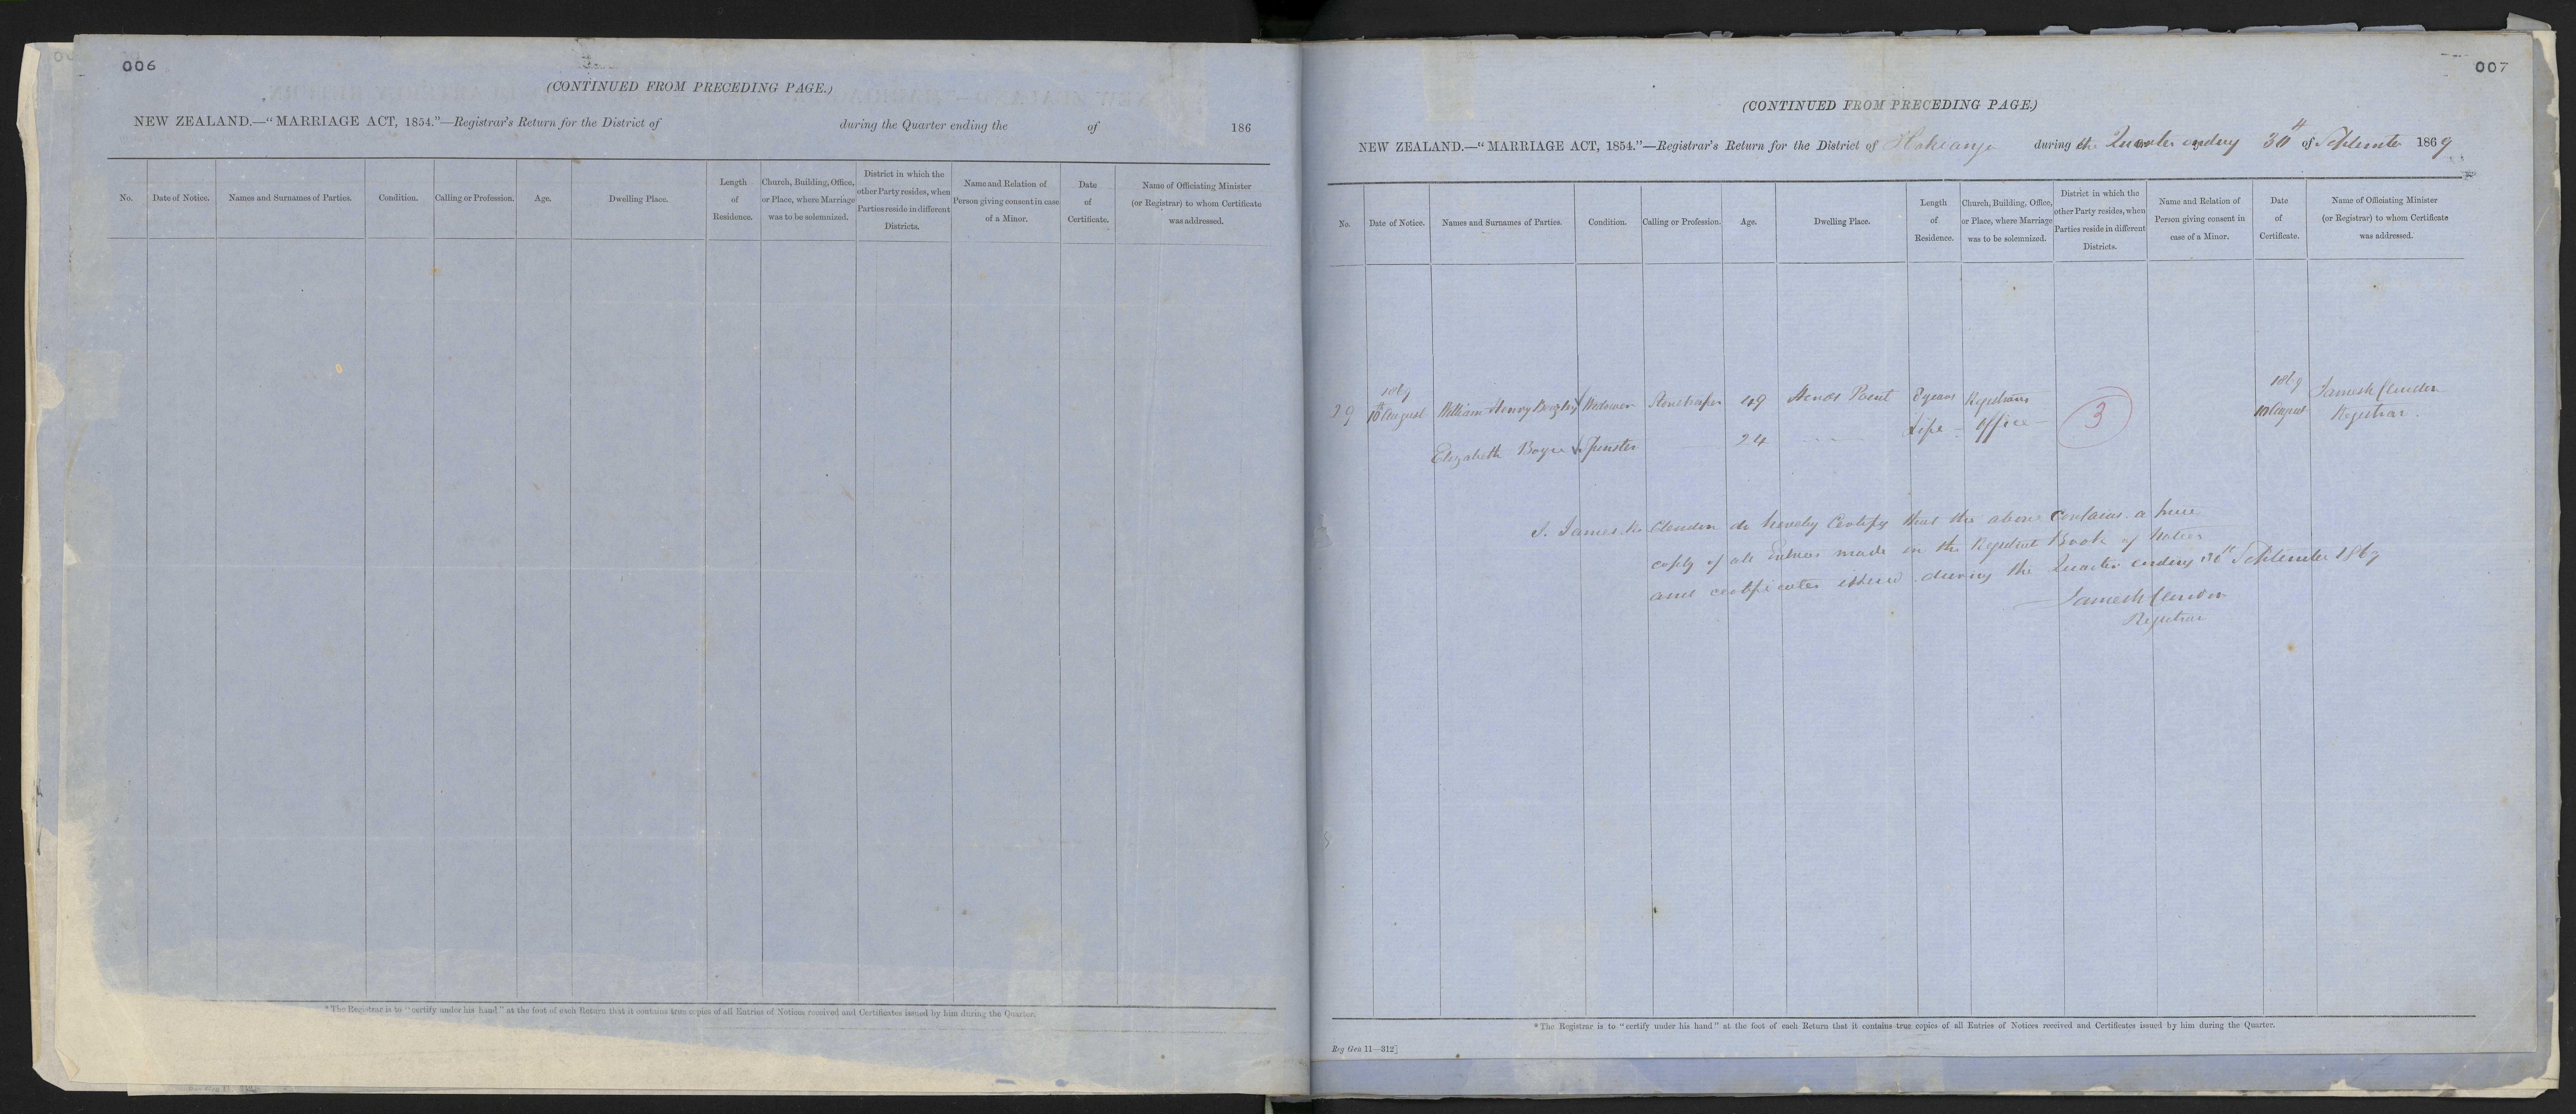 006
(CONTINUED FROM PRECEDING PAGE.)
NEW ZEALAND.—"MARRIAGE ACT, 1854."—Registrar's Return for the District of during the Quarter ending the of 186
No. Date of Notice. Names and Surnames of Parties. Condition. Calling or Profession. Age. Dwelling Place. Length of Residence. Church, Building, Office, or Place, where Marriage was to be solemnized. District in which the other Party resides, when Parties reside in different Districts. Name and Relation of Person giving consent in case of a Minor. Date of Certificate. Name of Officiating Minister (or Registrar) to whom Certificate was addressed.
*The Registrar is to "certify under his hand" at the foot of each Return that it contains true copies of all Entries of Notices received and Certificates issued by him during the Quarter.
007
(CONTINUED FROM PRECEDING PAGE.)
NEW ZEALAND.—"MARRIAGE ACT, 1854."—Registrar's Return for the District of Hokianga during the Quarter ending 30th of September 1869
No. Date of Notice. Names and Surnames of Parties. Condition. Calling or Profession. Age. Dwelling Place. Length of Residence. Church, Building, Office, or Place, where Marriage was to be solemnized. District in which the other Party resides, when Parties reside in different Districts. Name and Relation of Person giving consent in case of a Minor. Date of Certificate. Name of Officiating Minister (or Registrar) to whom Certificate was addressed.
1869 1869 James R Clendon
29 10th August William Henry Widower Storekeeper 49 Point 8 years Registrars 3 10 August Registrar.
Elizabeth Boyce Spinster 24 Life Office
I. James R Clendon do hereby Certify that the above contains a true
copy of all Entries made in the Book of Notices
and certificates issued during the Quarter ending 30th September 1869
James R Clendon
Registrar
*The Registrar is to "certify under his hand" at the foot of each Return that it contains true copies of all Entries of Notices received and Certificates issued by him during the Quarter.
Reg Gen 11—312]